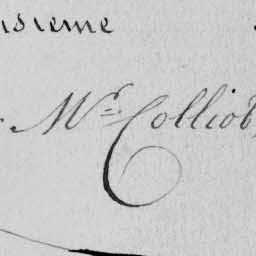 isieme
Mr. Colliob